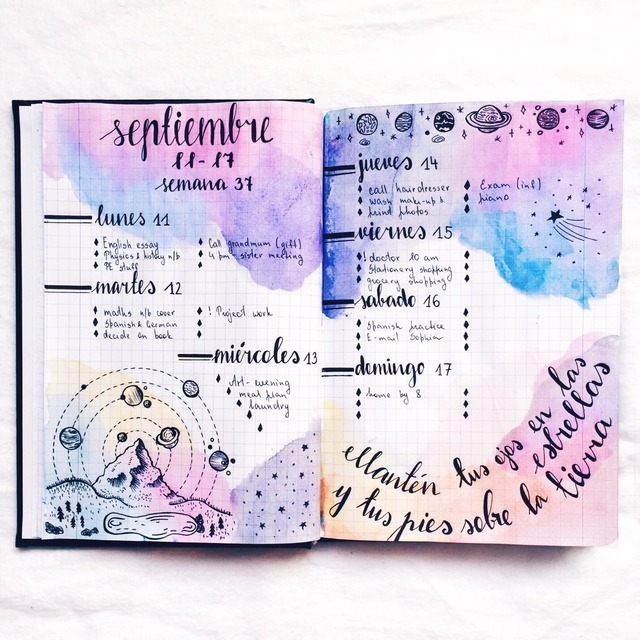 septiembre
11-17
semana 37
lunes 11
English essay
Physics & biology n/b
PE stuff
Call grandmum (gift)
4 pm - sister meeting
martes 12
maths n/b cover
Spanish & German
decide on book
! Project work
miércoles 13
Art-evening
meal plan
laundry
jueves 14
call hairdresser
wash make-up b
print photos
Exam (inf)
piano
viernes 15
! doctor 10 am
Stationery shopping
grocery shopping
sabado 16
Spanish practice
E-mail Sophia
domingo 17
home by 8
Mantén tus ojos en las
estrellas
y tus pies sobre la tierra